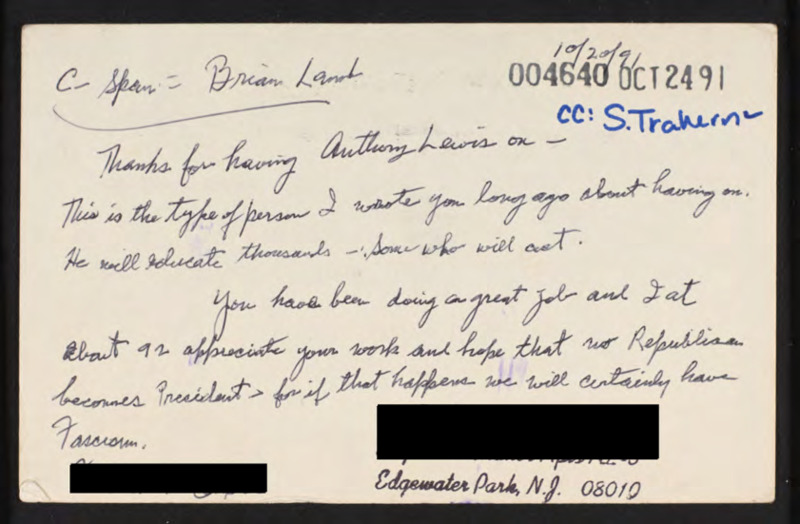 10/20/91
004640 OCT 24 91
C-Span = Brian Lamb
cc: S. Traherne
Thanks for having Anthony Lewis on –
This is the type of person I wrote you long ago about having on.
He will educate thousands – some who will act.
You have been doing a great job and I at
about 92 appreciate your work and hope that no Republican
becomes President – for if that happens we will certainly have
Fascism.
Edgewater Park, N.J. 08010